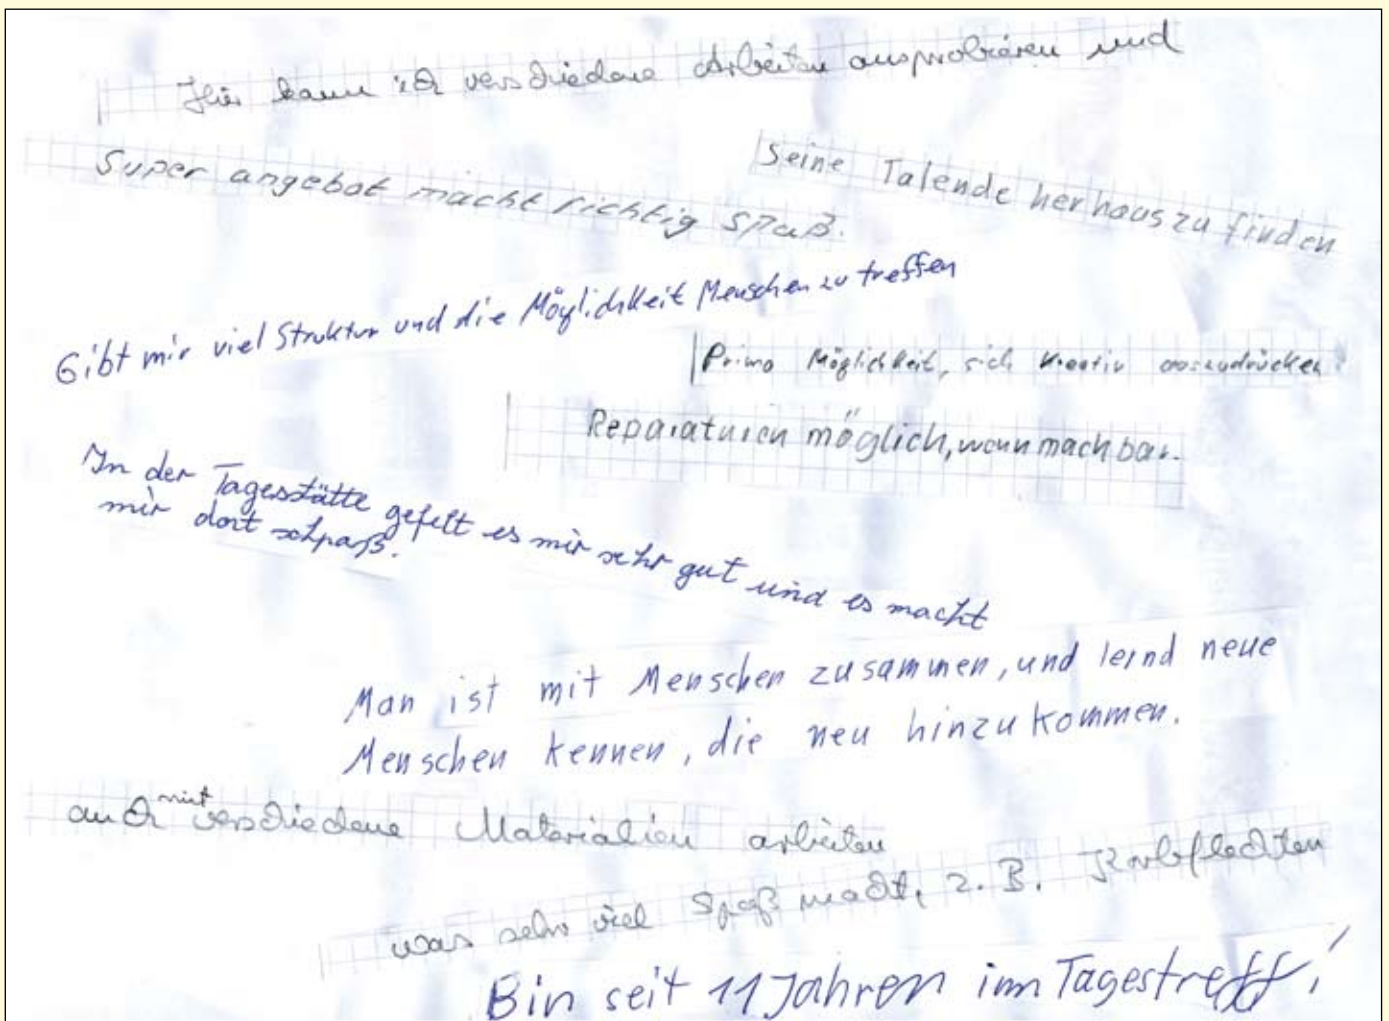 Hier kann ich verschiedene Arbeiten ausprobieren und
Super angebot macht richtig Spaß.
Seine Talende herhaus zu finden
Gibt mir viel Struktur und die Möglichkeit Menschen zu treffen
Prima Möglichkeit, sich kreativ auszudrücken
Reparaturen möglich, wenn machbar.
In der Tagesstätte gefellt es mir sehr gut und es macht
mir dort schpaß.
Man ist mit Menschen zusammen, und lernd neue
Menschen kennen, die neu hinzukommen.
auch mit verschiedene Materialien arbeiten
was sehr viel Spaß macht, z. B. Korbflechten
Bin seit 11 Jahren im Tagestreff!